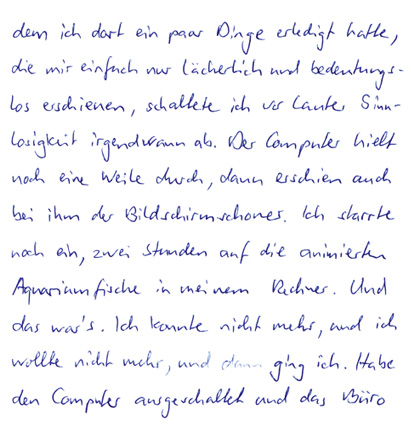 dem ich dort ein paar Dinge erledigt hatte,
die mir einfach nur lächerlich und bedeutungs-
los erschienen, schaltete ich vor lauter Sinn-
losigkeit irgendwann ab. Der Computer hielt
noch eine Weile durch, dann erschien auch
bei ihm der Bildschirmschoner. Ich starrte
noch ein, zwei Stunden auf die animierten
Aquariumfische in meinem Rechner. Und
das war's. Ich konnte nicht mehr, und ich
wollte nicht mehr, und dann ging ich. Habe
den Computer ausgeschaltet und das Büro